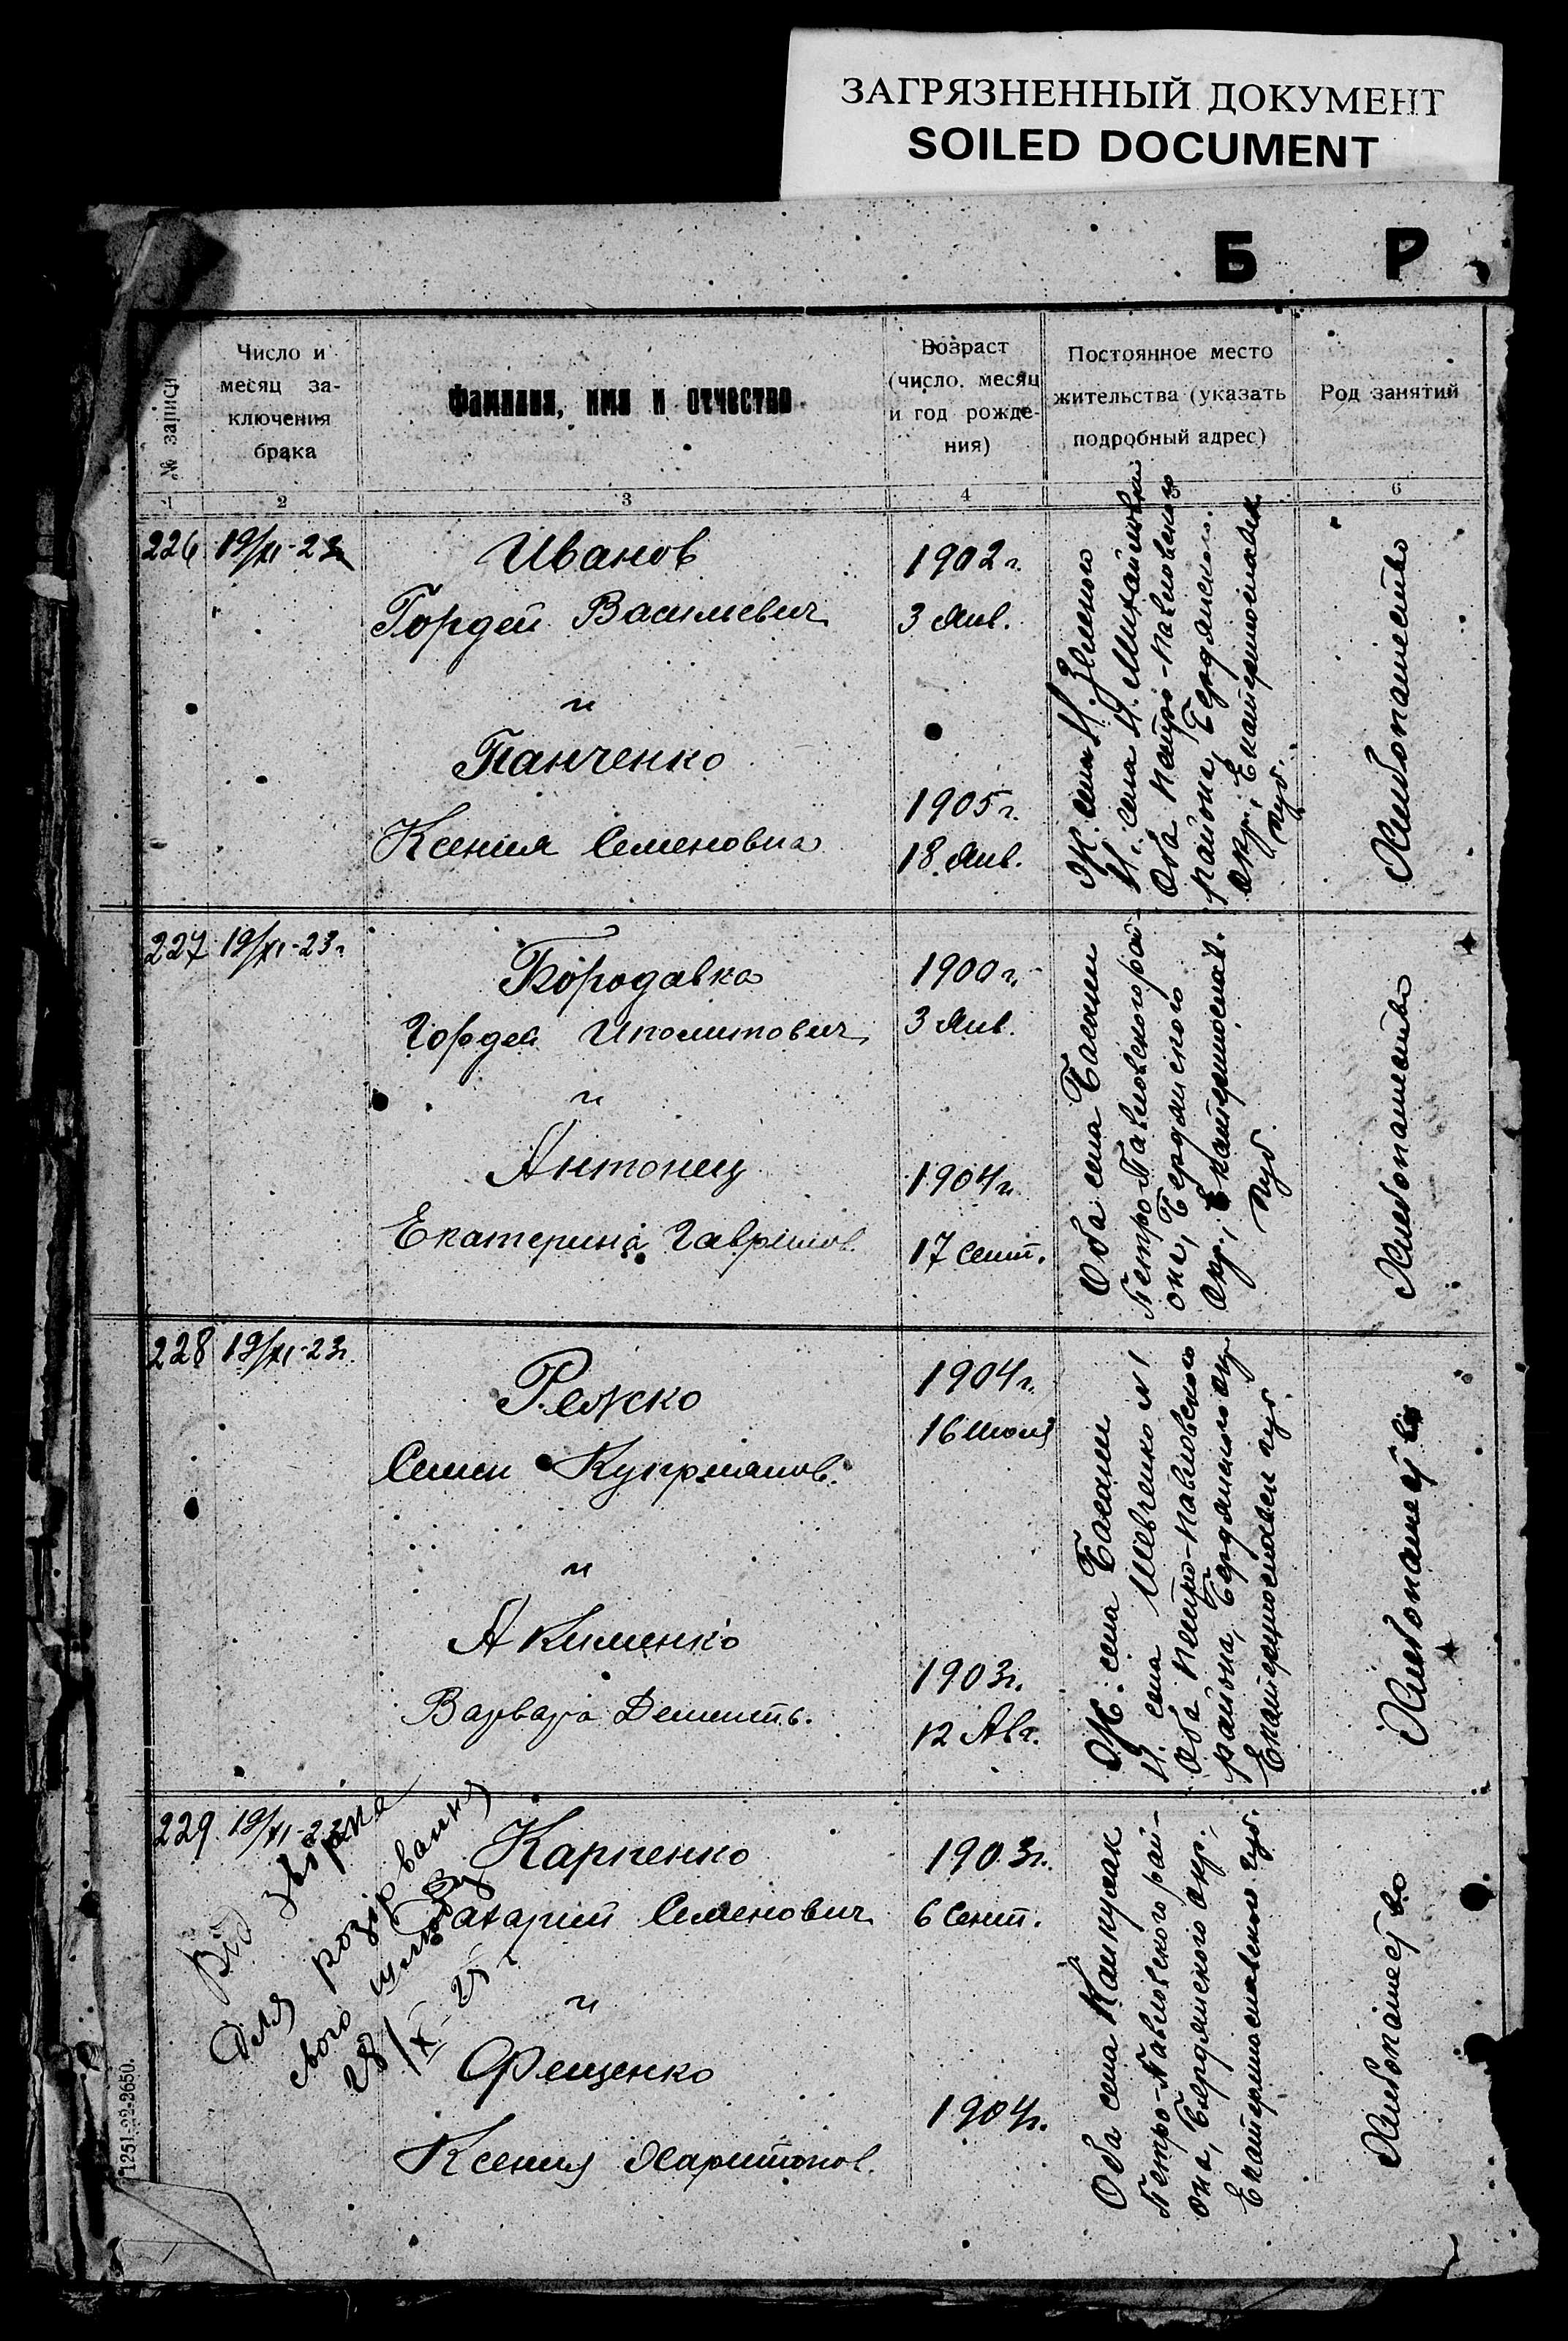 ЗАГРЯЗНЕННЫЙ ДОКУМЕНТ
SOILED DOCUMENT
Б Р
№ записи
Число и
месяц за-
ключения
брака
Фамилия, имя и отчество
Возраст
(число, месяц
и год рожде-
ния)
Постоянное место
жительства (указать
подробный адрес)
Род занятий
1 2 3 4 5 6
226 19/XI-23г
Иванов
Гордей Васильевич
и
Панченко
Ксения Семеновна
1902 г.
3 Янв.
1905 г.
18. Янв.
Ж. села Н.
Н. села Н. Михайловки
Оба Петро-Павловского
района, Бердянского
окр., Екатеринославск
губ.
Хлебопашество
227 19/XI-23г
Бородавка
Гордей Иполитович
и
Антонец
Екатерина Гаврилов.
1900 г.
3 Янв.
1904 г.
17 Сент.
Оба села Басани
Петро Павловского рай-
она, Бердянского
окр., Екатеринослав.
губ.
Хлебопашество
228 19/XI-23г.
Режко
Семен Куприянов.
и
Акименко
Варвара Демент.
1904 г.
16 Июля
1903 г.
12 Авг.
Ж. села Басани
Н. села Шевченко N 1
Оба Петро-Павловского
района, Бердянского окр
Екатеринославск губ.
Хлебопашество
229 19/XI-23
Карпенко
Захарий Семенович
и
Фещенко
Ксения Харитонов.
1903 г.
6 Сент.
1904 г.
Оба села
Петро-Павловского рай-
она, Бердянского окр.,
Екатеринославской губ.
Хлебопашество
Від
для розірвання
свого шлюбу
28/X-25 г
1251-22-2650.